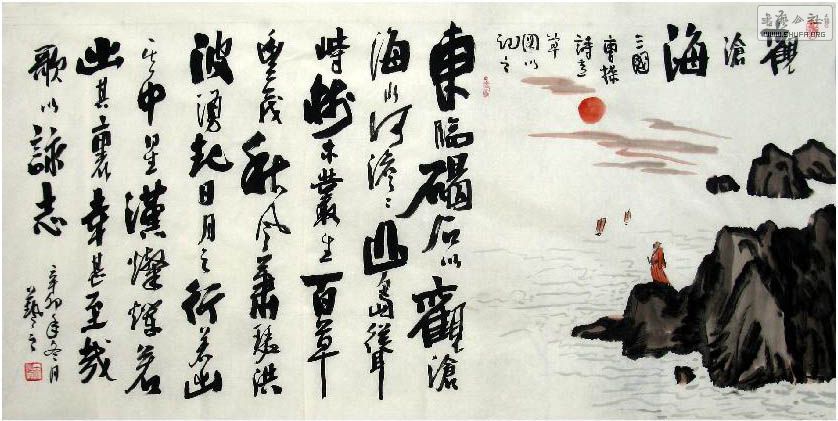 觀滄海
三國
曹操
詩意
草
圖以
記之
東臨碣石以觀滄
海水何澹〻山島
峙樹木叢生百草
豐茂秋風蕭瑟洪
波湧起日月之行若出
其中星漢燦爛若
出其裏幸甚至哉
歌以詠志
辛卯年冬月
WWW.SHUFA.ORG